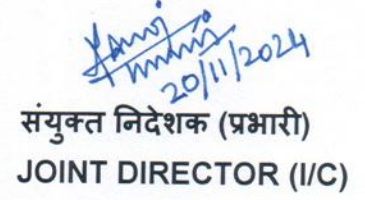 20/11/2024
संयुक्त निदेशक (प्रभारी)
JOINT DIRECTOR (I/C)